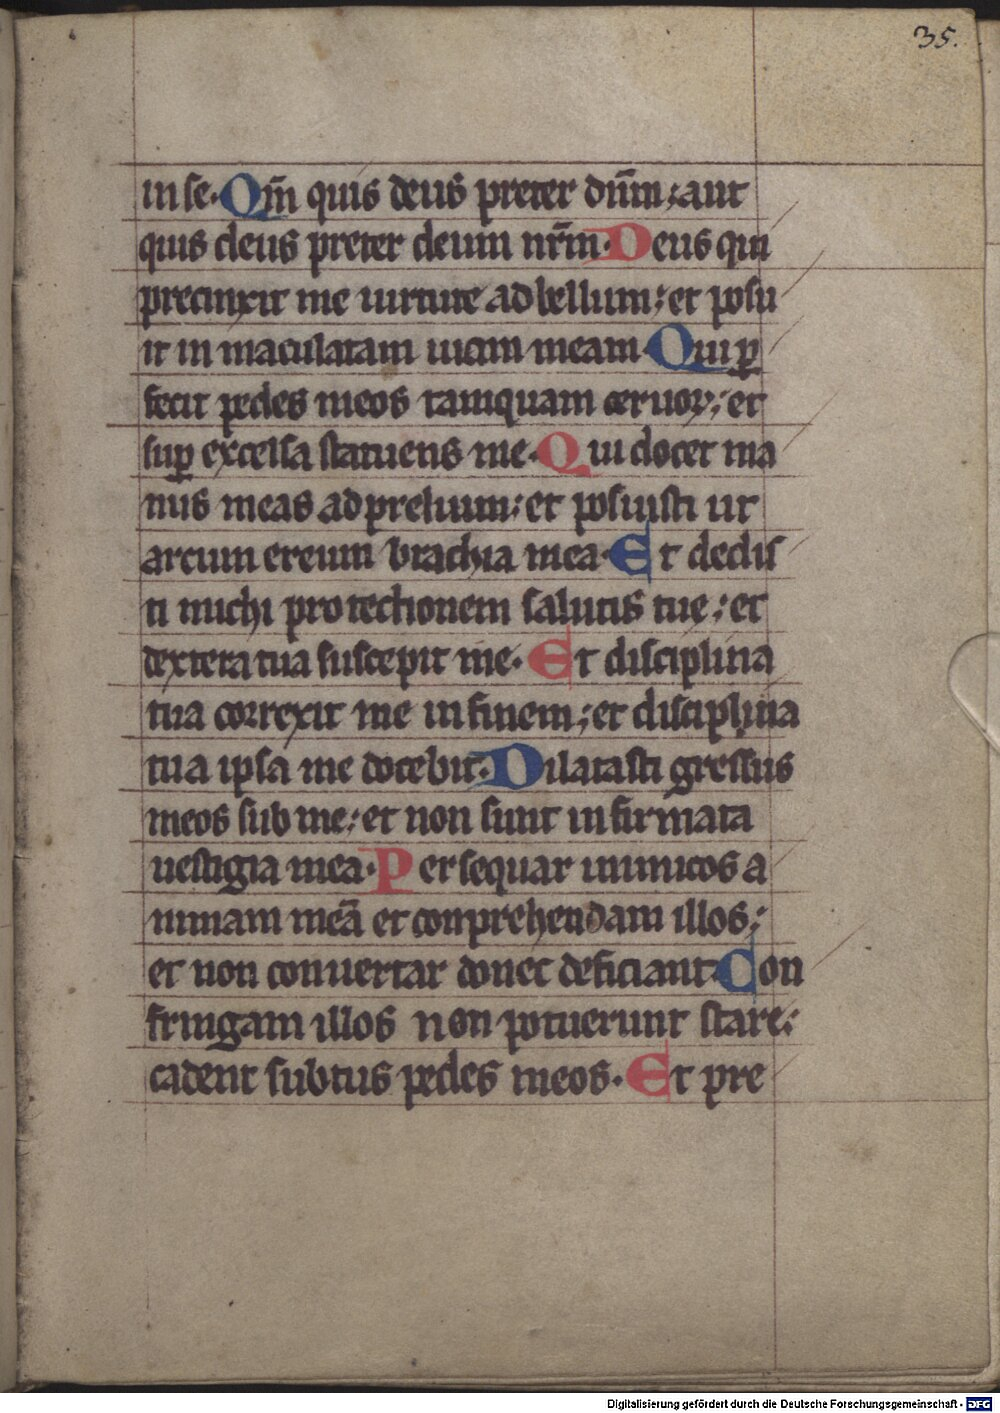 35.
in se. Qm̄ quis deus preter dn̄m; aut
quis deus preter deum nr̄m. Deus qui
precinxit me uirtute ad bellum; et posu
it in maculatam uiam meam. Qui ꝑ
fecit pedes meos tamquam ceruoꝝ; et
suꝑ excelsa statuens me. Qui docet ma
nus meas ad prelium; et posuisti ut
arcum ereum brachia mea. Et dedis
ti michi protectionem salutis tue; et
dextera tua suscepit me. Et disciplina
tua correxit me in finem; et disciplina
tua ipsa me docebit. Dilatasti gressus
meos sub me; et non sunt infirmata
uestigia mea. Persequar inimicos a
nimam meā et conprehendam illos;
et non conuertar donec deficiant. Con
fringam illos non potuerunt stare;
cadent subtus pedes meos. Et pre
Digitalisierung gefördert durch die Deutsche Forschungsgemeinschaft - DFG